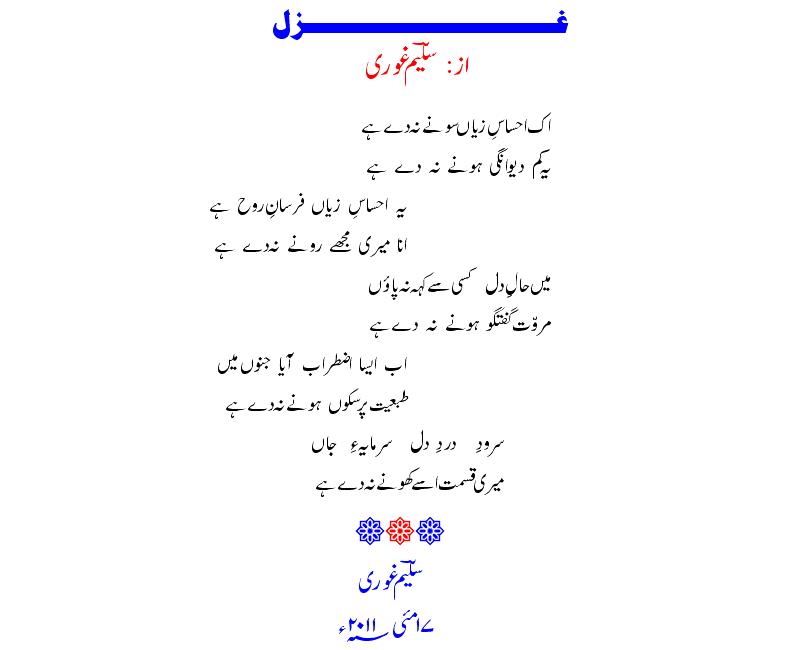 غزل
از: سلیمؔ غوری
اک احساسِ زیاں سونے نہ دے ہے
یہ کم دیوانگی ہونے نہ دے ہے
یہ احساسِ زیاں فرسانِ روح ہے
انا میری مجھے رونے نہ دے ہے
میں حالِ دل کسی سے کہہ نہ پاؤں
مروّت گفتگو ہونے نہ دے ہے
اب ایسا اضطراب آیا جنوں میں
طبعیت پرسکوں ہونے نہ دے ہے
سرودِ دردِ دل سرمایہءِ جاں
میری قسمت اسے کھونے نہ دے ہے
سلیمؔ غوری
۱۷مئی ۲۰۱۱؁ء